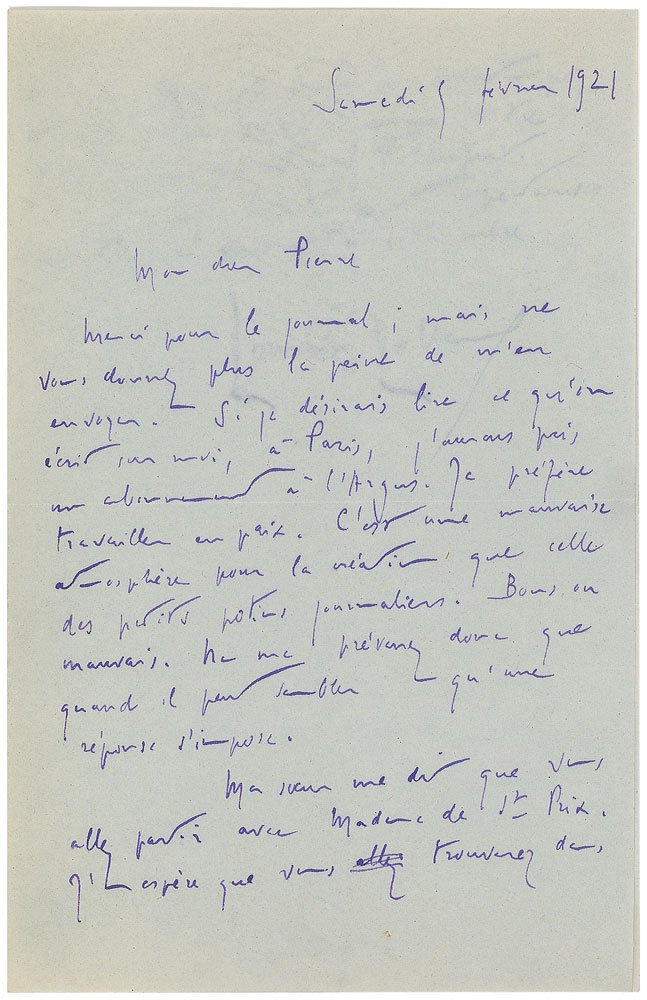 Samedi 5 février 1921
Mon cher Pierre
Merci pour le journal ; mais ne
vous donnez plus la peine de m'en
envoyer. Si je désirais lire ce qu'on
écrit sur moi, à Paris, j'aurais pris
un abonnement à l'Argus. Je préfère
travailler en paix. C'est une mauvaise
atmosphère pour la création que celle
des petits potins journaliers. Bons ou
mauvais. Ne me prévenez donc que
quand il peut sembler qu'une
réponse s'impose.
Ma sœur me dit que vous
allez partir avec Madame de St Prix.
J'espère que vous allez trouverez dans